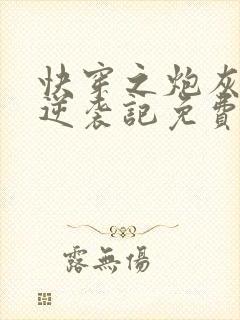 快穿之炮灰
逆袭記免費
露無傷